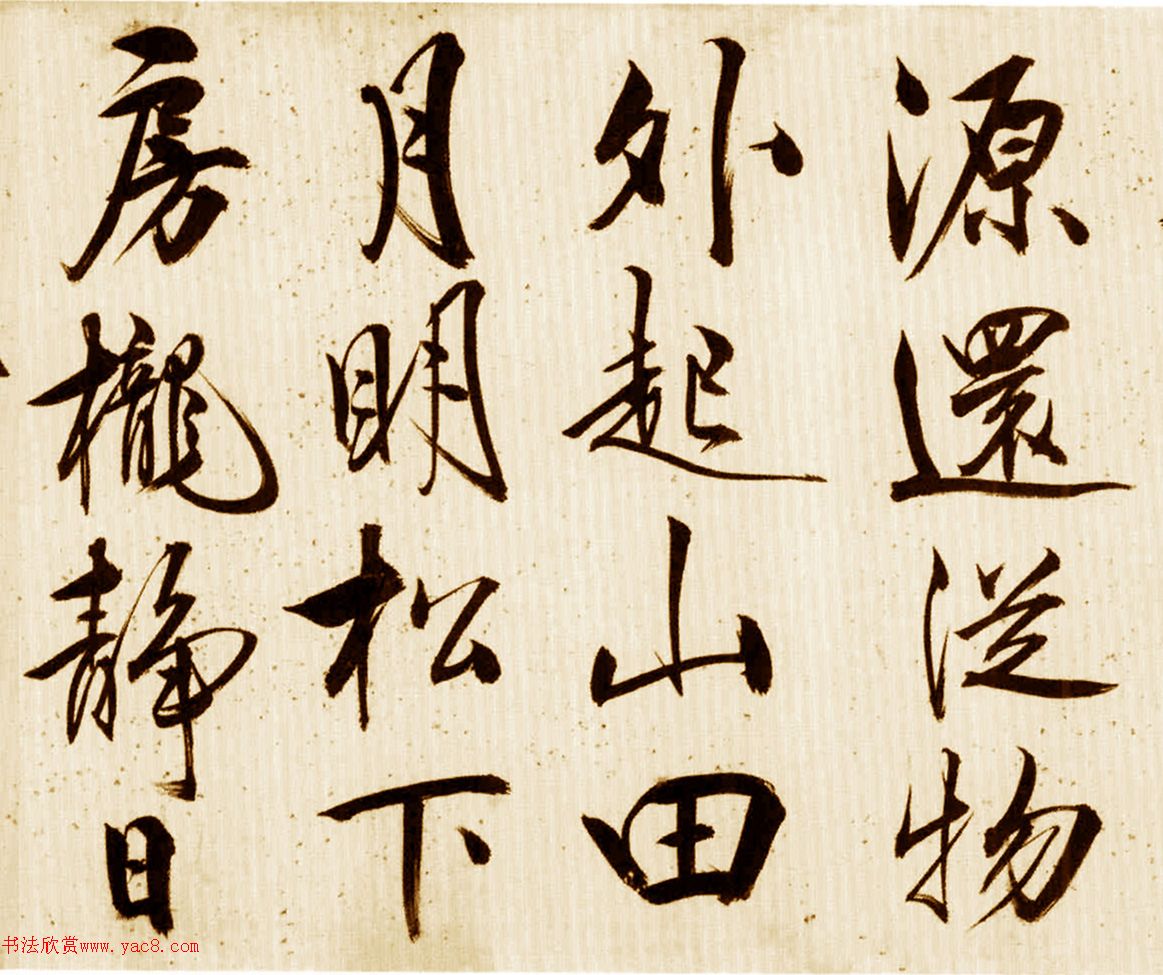 源還從物
外起山田
月明松下
房櫳静日
书法欣赏www.yac8.com